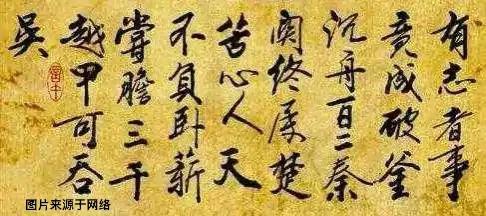 有志者事
竟成破釜
沉舟百二秦
関终属楚
苦心人天
不負卧薪
嘗膽三千
越甲可吞
吴
图片来源于网络